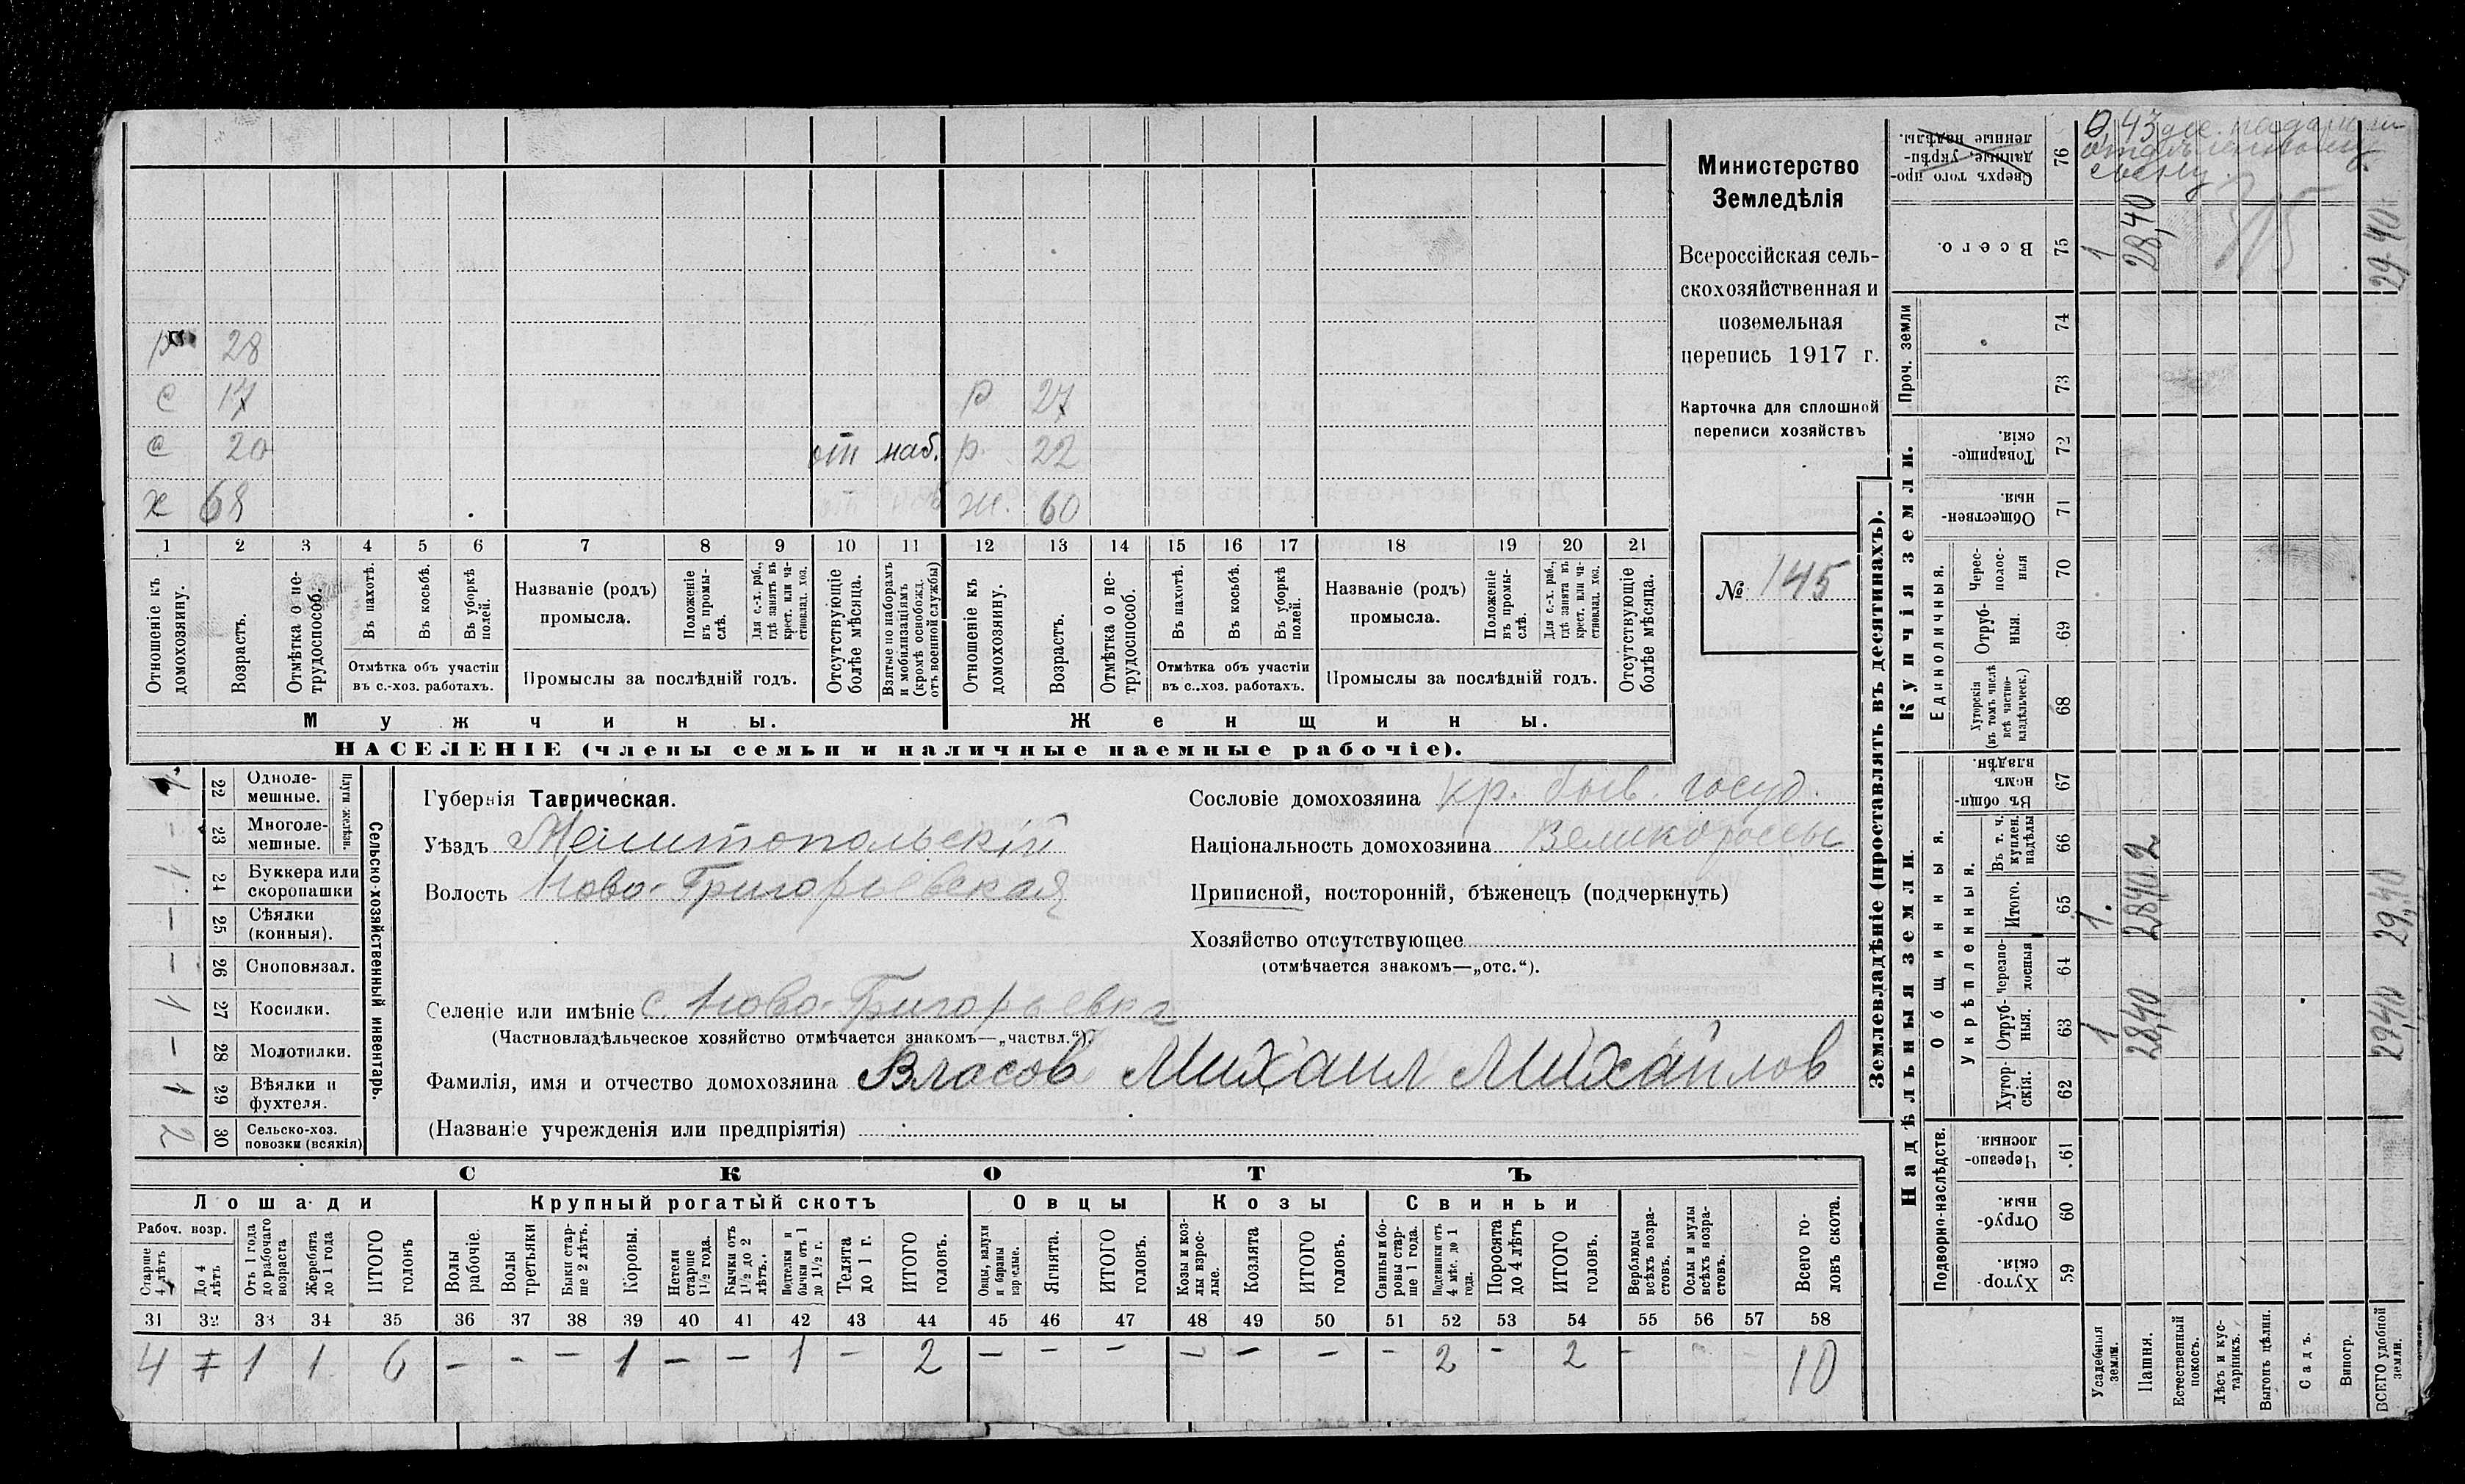 Министерство
Земледѣлія
Всероссійская сель-
скохозяйственная и
поземельная
перепись 1917 г.
Карточка для сплошной
переписи хозяйствъ
№ 145
28
с 17 р 27
с 20 от наб. р. 22
х 68 ж. 60
1 2 3 4 5 6 7 8 9 10 11 12 13 14 15 16 17 18 19 20 21
Отношеніе къ домохозяину.
Возрастъ.
Отмѣтка о не-трудоспособ.
Въ пахотѣ.
Въ косьбѣ.
Въ уборкѣ полей.
Отмѣтка объ участіи
въ с.-хоз. работахъ.
Названіе (родъ)
промысла.
Положеніе въ промы-слѣ.
Для с.-х. раб., гдѣ занятъ въ крест. или ча-стновлад. хоз.
Промыслы за послѣдній годъ.
Отсутствующіе болѣе мѣсяца.
Взятые по наборамъ и мобилизаціямъ (кромѣ освобожд. отъ военной службы)
Отношеніе къ домохозяину.
Возрастъ.
Отмѣтка о не-трудоспособ.
Въ пахотѣ.
Въ косьбѣ.
Въ уборкѣ полей.
Отмѣтка объ участіи
въ с..хоз. работахъ.
Названіе (родъ)
промысла.
Положеніе въ промы-слѣ.
Для с.-х. раб., гдѣ занята въ крест. или ча-стновлад. хоз.
Промыслы за послѣдній годъ.
Отсутствующіе болѣе мѣсяца.
Мужчины. Женщины.
НАСЕЛЕНІЕ (члены семьи и наличные наемные рабочіе).
Сельско-хозяйственный инвентарь.
Плуги желѣзн.
22 Одноле-мешные.
– 23 Многоле-мешные.
1 24 Буккера или скоропашки
– 25 Сѣялки (конныя).
– 26 Сноповязал.
1 27 Косилки.
– 28 Молотилки.
1 29 Вѣялки и фухтеля.
2 30 Сельско-хоз. повозки (всякія)
Губернія Таврическая.
Уѣздъ Мелитопольскій
Волость Ново-Григорьевская
Сословіе домохозяина кр. быв. госуд.
Національность домохозяина Великороссы
Приписной, посторонній, бѣженецъ (подчеркнуть)
Хозяйство отсутствующее
(отмѣчается знакомъ—„отс.“).
Селеніе или имѣніе с. Ново-Григорьевка
(Частновладѣльческое хозяйство отмѣчается знакомъ—„частвл.“).
Фамилія, имя и отчество домохозяина Власов Михаил Михайлов
(Названіе учрежденія или предпріятія)
СКОТЪ
Лошади Крупный рогатый скотъ Овцы Козы Свиньи
Рабоч. возр.
Старше 4 лѣтъ
До 4 лѣтъ
Отъ 1 года до рабочаго возраста
Жеребята до 1 года
ИТОГО головъ
Волы рабочіе.
Волы третьяки
Быки стар-ше 2 лѣтъ.
Коровы.
Нетели старше 1 1/2 года.
Бычки отъ 1 1/2 до 2 лѣтъ.
Подтелки и бычки отъ 1 до 1 1/2 г.
Телята до 1 г.
ИТОГО головъ.
Овцы, валухи и бараны взрослые.
Ягнята.
ИТОГО головъ.
Козы и коз-лы взрос-лые.
Козлята
ИТОГО головъ.
Свиньи и бо-ровы стар-ше 1 года.
Подсвинки отъ 4 мѣс. до 1 года.
Поросята до 4 лѣтъ
ИТОГО головъ.
Верблюды всѣхъ возра-стовъ.
Ослы и мулы всѣхъ возра-стовъ.
Всего го-ловъ скота.
31 32 33 34 35 36 37 38 39 40 41 42 43 44 45 46 47 48 49 50 51 52 53 54 55 56 57 58
4 1 1 6 – – – 1 – – 1 – 2 – – – – – – – 2 – 2 – – – 10
Землевладѣніе (проставлять въ десятинахъ).
Надѣльныя земли. Купчія земли. Проч. земли
Подворно-наслѣдств.
Общинныя.
Укрѣпленныя.
Единоличныя.
Хутор-скія. 59
Отруб-ныя. 60
Черезпо-лосныя. 61
Хутор-скія. 62
Отруб-ныя. 63
черезпо-лосныя 64
Итого. 65
Въ т. ч. куплен. надѣлы 66
Въ общин-номъ владѣн. 67
Хуторскія (въ томъ числѣ всѣ частно-владѣльческ.) 68
Отруб-ныя. 69
Черес-полос-ныя 70
Обществен-ныя. 71
Товарище-скія. 72
73
74
Всего. 75
Сверхъ того про-данные, укрѣп-ленные надѣлы. 76
Усадебныя земли. 1 1. 1
Пашня. 28,40 28,40 2 28,40
Естественный покосъ.
Лѣсъ и кус-тарникъ.
Выгонъ цѣлин.
Садъ.
Виногр.
ВСЕГО удобной земли. 29,40 29,40 29 40
0,43 дес.
сыну.
315